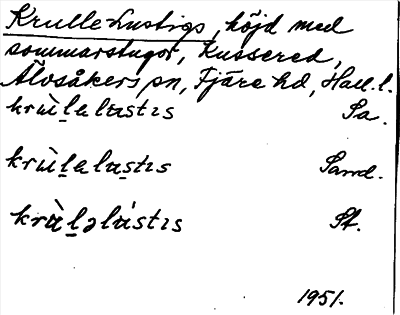 Krulle-Lustigs, höjd med
sommarstugor, Kussered,
Älvsåkers sn, Fjäre hd, Hall. l.
krùḻalustɪs Sa.
krùḻalu̱stɪs Sand.
krùḻəlústɪs St.
1951.